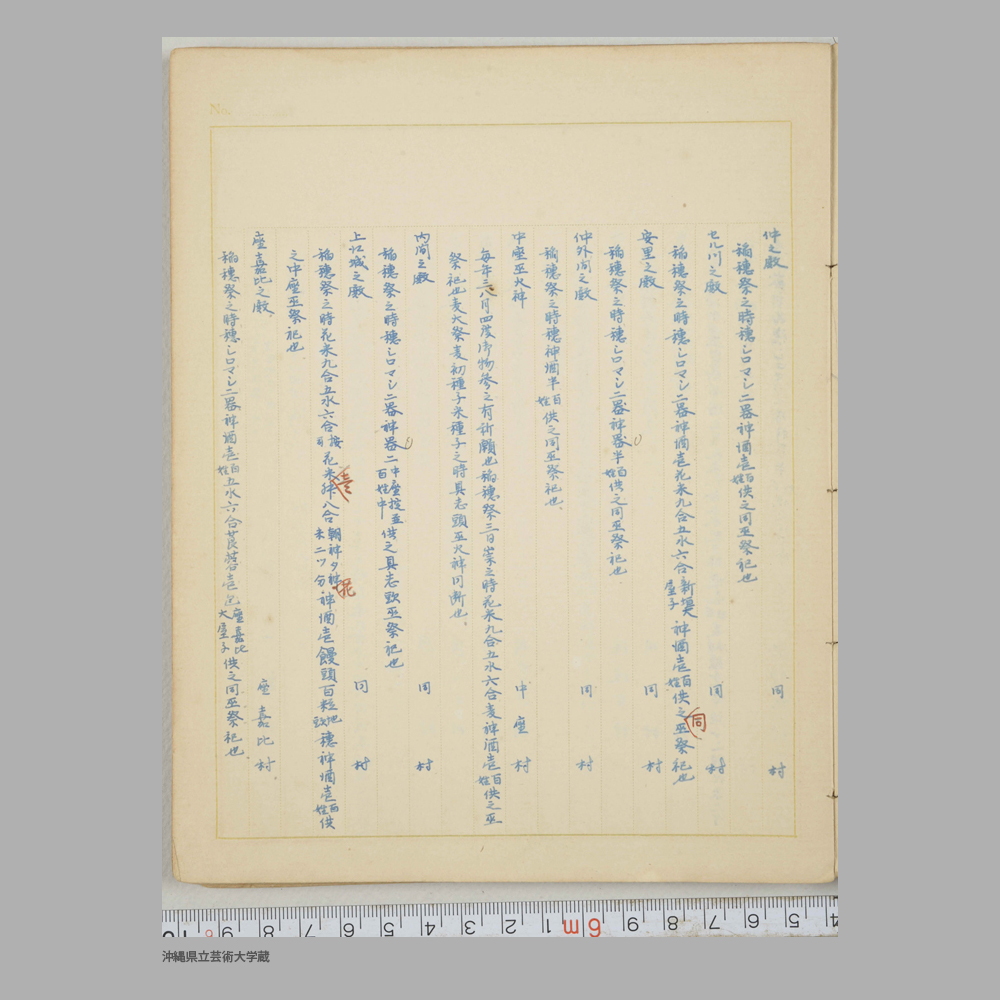 仲之殿　同村
稲穂祭之時穂シロマシ二器神酒壱百姓供之同巫祭祀也
セル川之殿　同村
稲穂祭之時穂シロマシ二器神酒壱花米九合五水六合神酒壱百姓供之同巫祭祀也
安里之殿　同村
稲穂祭之時穂シロマシ二器神酒半百姓供之同巫祭祀也
仲外間之殿　同村
稲穂祭之時穂神酒半百姓供之同巫祭祀也
中座巫火神　中座村
毎年三八月四度御物参之有祈願也稲穂祭三日崇之時花米九合五水六合麦神酒壱百姓供之巫
祭祀也麦大祭麦初種子米種子之時具志頭巫火神同断也
内間之殿　同村
稲穂祭之時穂シロマシ二器神酒二中座掟並百姓中供之具志頭巫祭祀也
上江城之殿　同村
稲穂祭之時花米九合五水六合掟花米壱升八合朝神夕神神酒壱饅頭百粒地頭穂神酒壱百姓供
之中座巫祭祀也
座嘉比之殿　座嘉比村
稲穂祭之時穂シロマシ二器神酒壱百姓五水六合壱座嘉比大屋子供之同巫祭祀也
沖縄県立芸術大学蔵